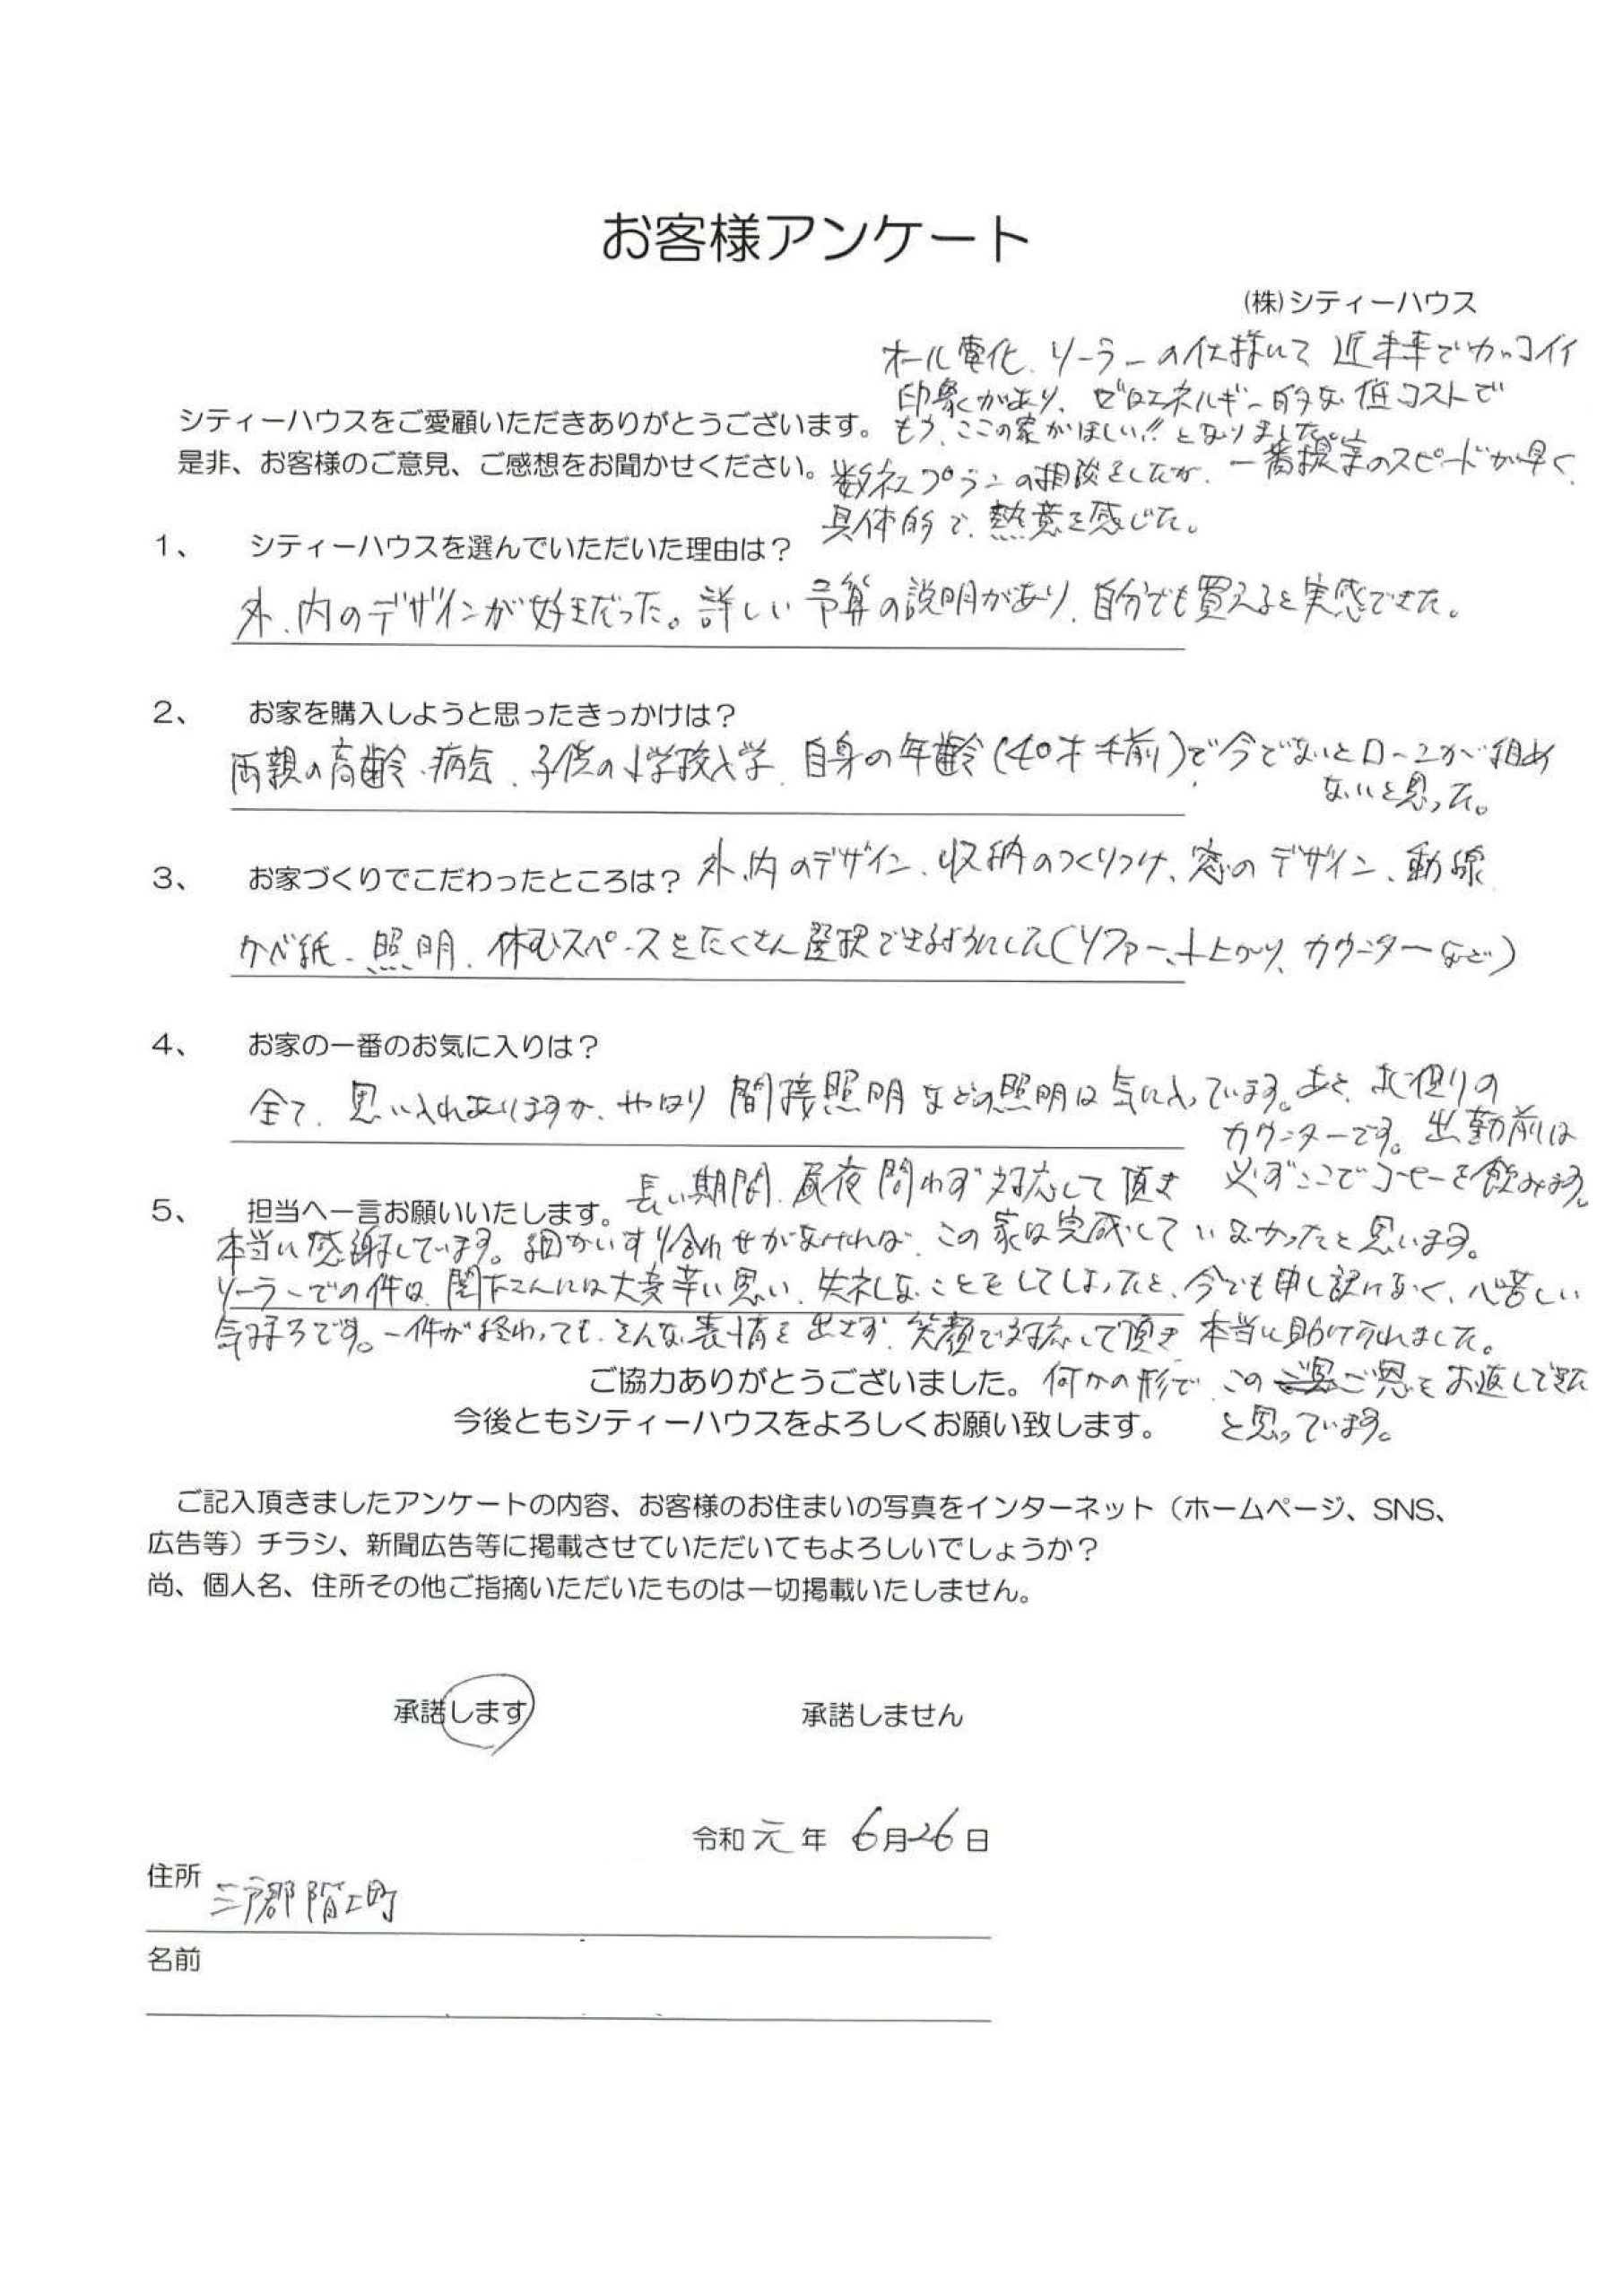 お客様アンケート
(株)シティーハウス
オール電化、ソーラーの仕様にて 近未来でカッコイイ
印象があり、ゼロエネルギー的な低コストで
シティーハウスをご愛顧いただきありがとうございます。
もう、ここの家がほしい!!となりました。
是非、お客様のご意見、ご感想をお聞かせください。
数社プランの相談をしたが、一番提案のスピードが早く、
具体的で、熱意を感じた。
1、 シティーハウスを選んでいただいた理由は?
外、内のデザインが好きだった。詳しい予算の説明があり、自分でも買えると実感できた。
2、 お家を購入しようと思ったきっかけは?
両親の高齢、病気、子供の小学校入学、自身の年齢(40才手前)で、今でないとローンが組め
ないと思った。
3、 お家づくりでこだわったところは?
外、内のデザイン、収納のつくりつけ、窓のデザイン、動線
かべ紙、照明、休むスペースをたくさん選択できるようにした(ソファー、小上がり、カウンターなど)
4、 お家の一番のお気に入りは?
全て、思い入れありますが、やはり 間接照明などの照明は気に入っています。あと、お
カウンターです。出勤前は
必ずここでコーヒーを飲みます。
5、 担当へ一言お願いいたします。
長い期間、昼夜問わず対応して頂き
本当に感謝しています。細かいすり合わせがなければ、この家は完成していなかったと思います。
ソーラーでの件は、関下さんには大変辛い思い、失礼なことをしてしまったと、今でも申し訳けなく、心苦しい
気持ちです。一件が終わっても、そんな表情を出さず、笑顔で対応して頂き 本当に助けられました。
ご協力ありがとうございました。
何かの形で、このご恩をお返しできた
今後ともシティーハウスをよろしくお願い致します。
と思っています。
ご記入頂きましたアンケートの内容、お客様のお住まいの写真をインターネット(ホームページ、SNS、
広告等)チラシ、新聞広告等に掲載させていただいてもよろしいでしょうか?
尚、個人名、住所その他ご指摘いただいたものは一切掲載いたしません。
承諾します 承諾しません
令和元年 6月26日
住所 三戸郡階上町
名前